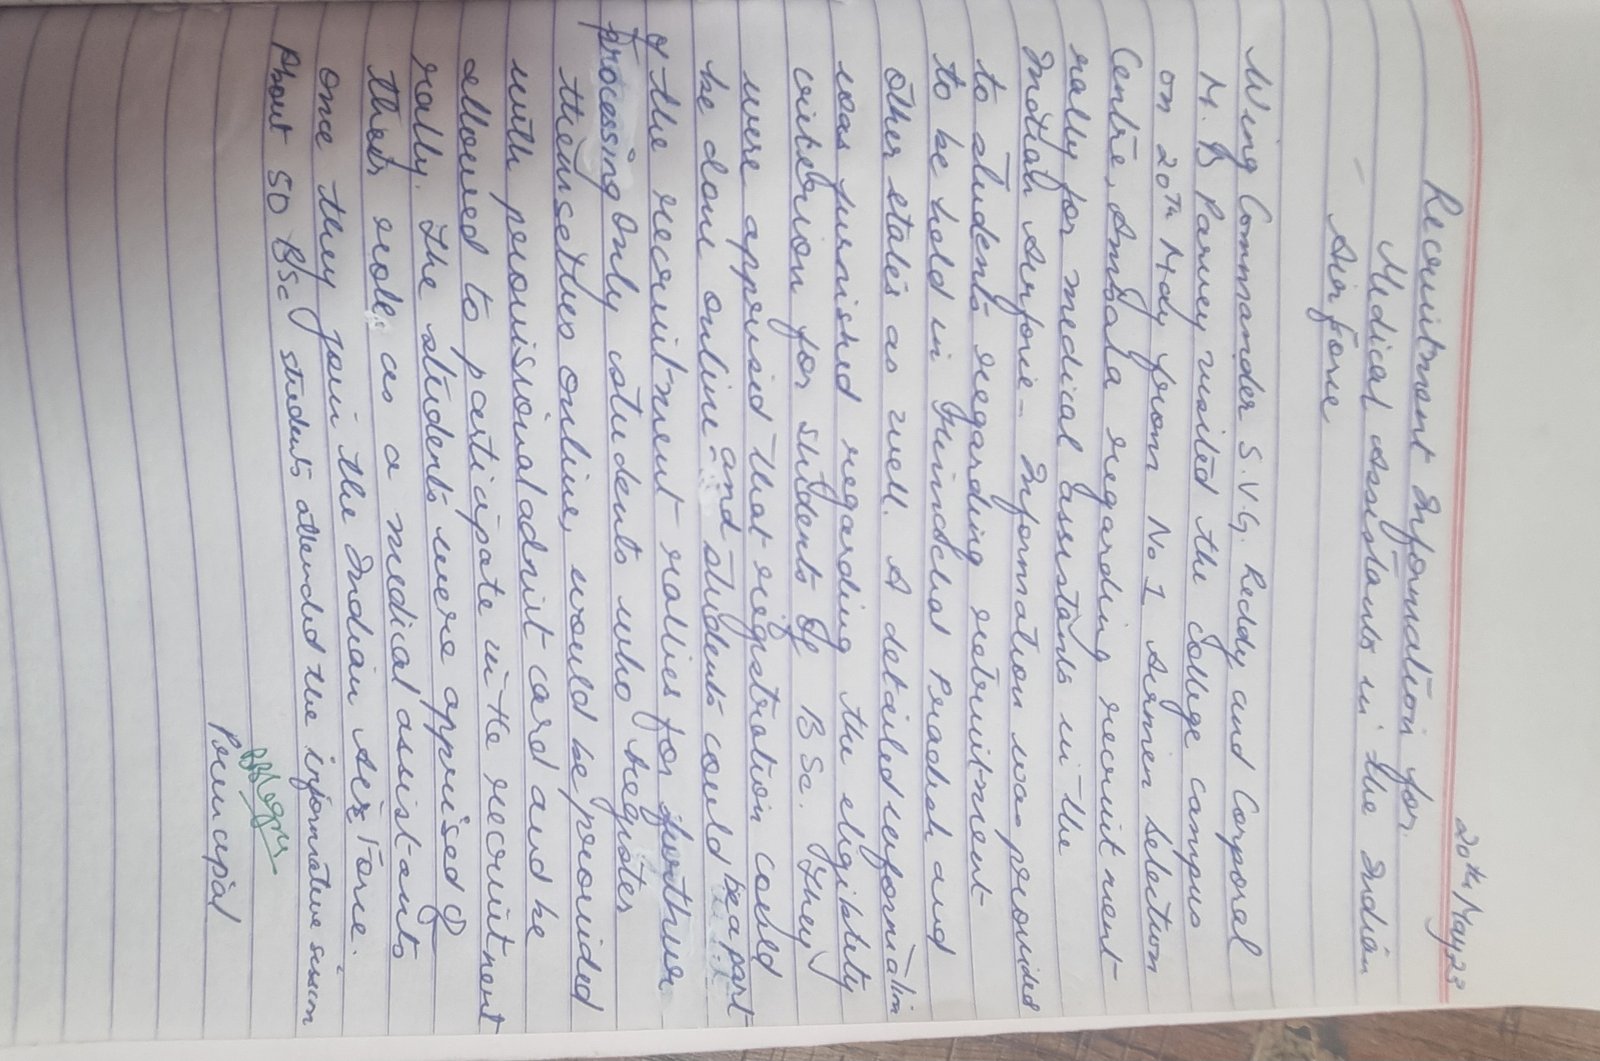 20th May 23
Recruitment Information for
Medical Assistants in the Indian
Air Force
Wing Commander S.V.G. Reddy and Corporal
M. B Parvey visited the college campus
on 20th May from No 1 Airmen Selection
Centre, Ambala regarding recruitment
rally for medical assistants in the
Indian Airforce - Information was provided
to students regarding retruitment
to be hold in Himachal Pradesh and
other states as well. A detailed information
was furnished regarding the eligibility
criterion for students of BSc. They
were apprised that registration could
be done online and students could be a part
of the recruitment rallies for further
processing Only students who register
themselves online, would be provided
with provisional admit card and be
allowed to participate in the recruitment
rally. The students were apprised of
their roles as a medical assistants
once they join the Indian Air Force.
About 50 BSc students attended the informative session
Principal